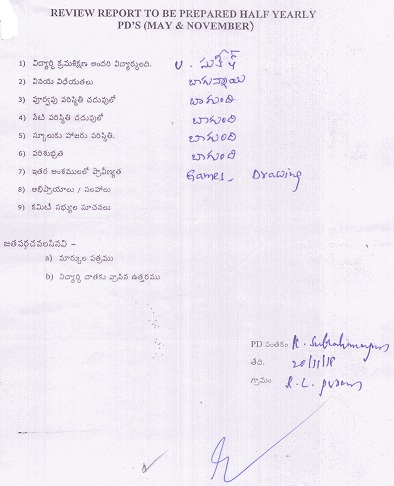 REVIEW REPORT TO BE PREPARED HALF YEARLY
PD'S (MAY & NOVEMBER)
1) విద్యార్థి క్రమశిక్షణ అందరి విద్యార్థులది. U. సురేష్
2) వినయ విధేయతలు బాగున్నాయి
3) పూర్వపు పరిస్థితి చదువులో బాగుంది
4) నేటి పరిస్థితి చదువులో బాగుంది
5) స్కూలుకు హాజరు పరిస్థితి. బాగుంది
6) పరిశుభ్రత బాగుంది
7) ఇతర అంశములలో ప్రావీణ్యత Games - Drawing
8) అభిప్రాయాలు / సలహాలు
9) కమిటీ సభ్యుల సూచనలు
జతపర్చవలసినవి –
a) మార్కుల పత్రము
b) విద్యార్థి దాతకు వ్రాసిన ఉత్తరము
PD సంతకం
తేది. 20/11/18
గ్రామం